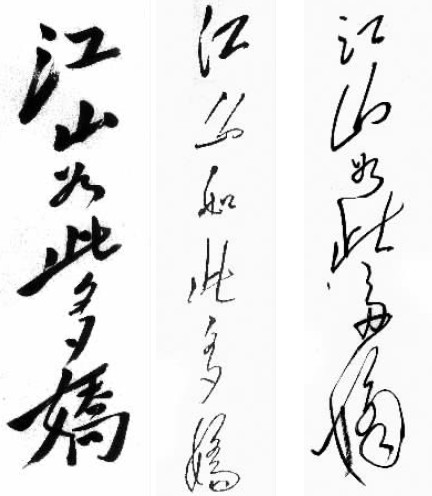 江山如此多嬌
江山如此多嬌
江山如此多嬌